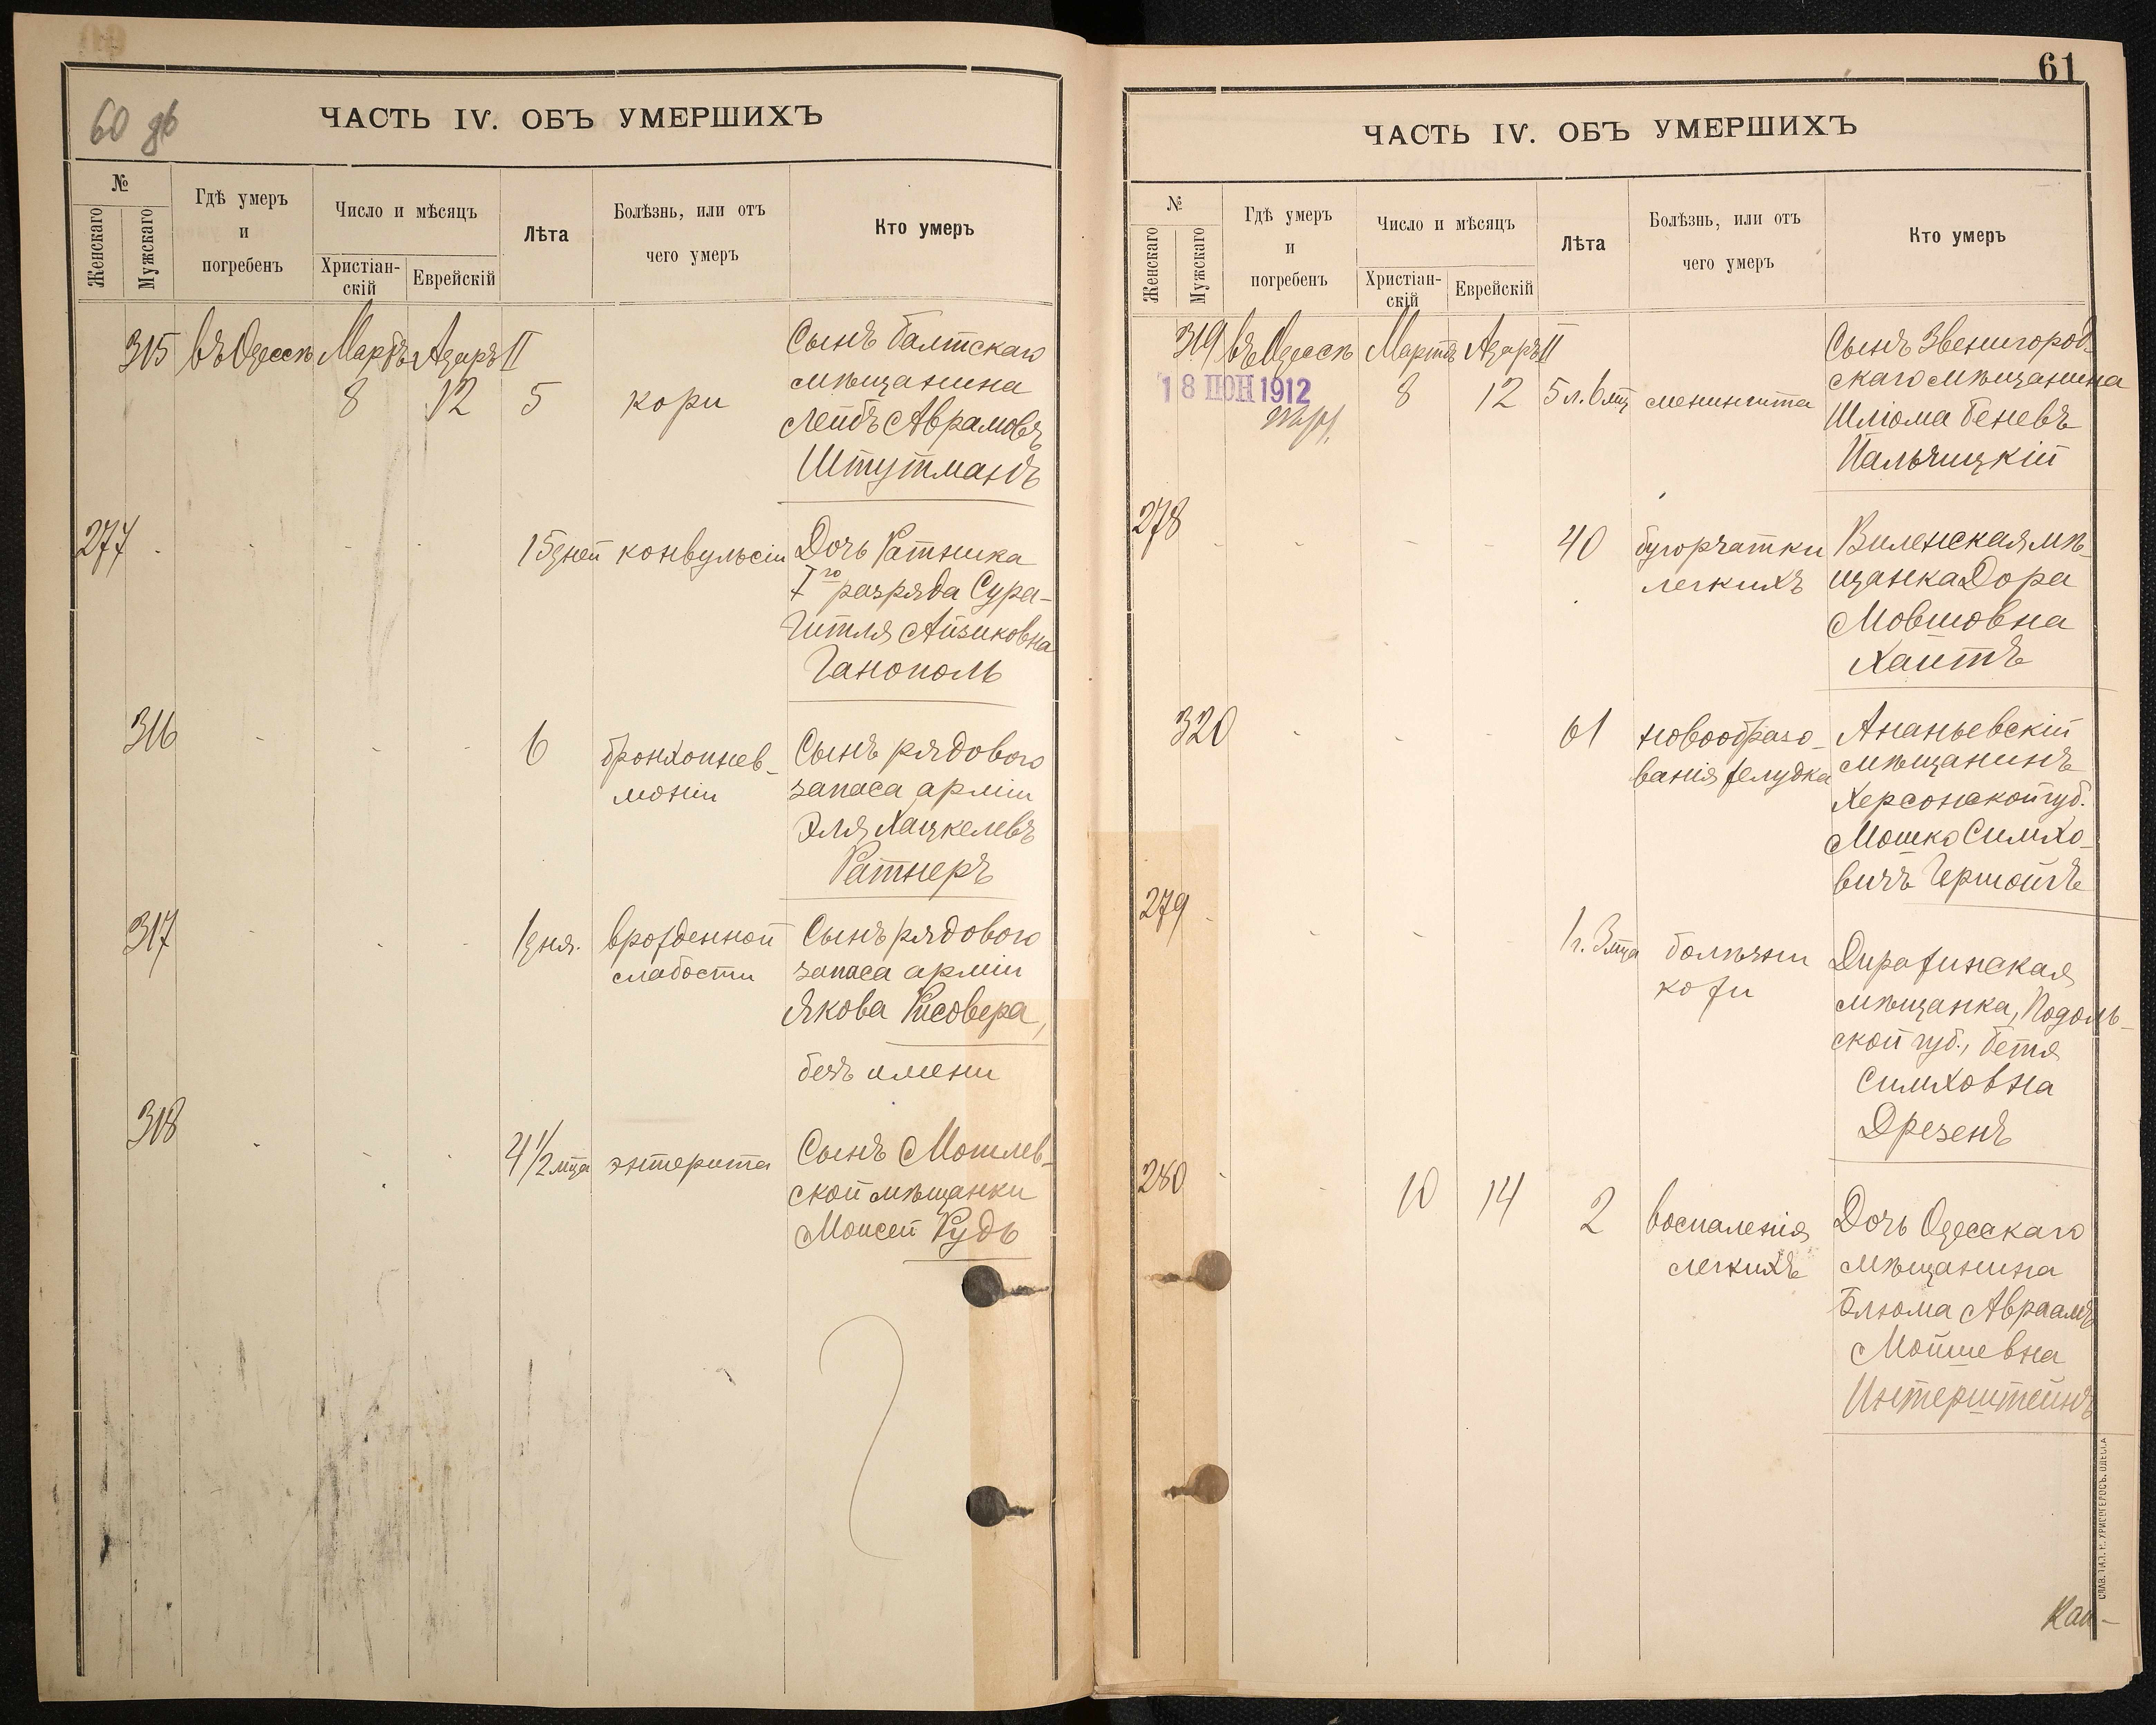 60 дб
ЧАСТЬ IV. ОБЪ УМЕРШИХЪ
№
Женскаго
Мужскаго
Гдѣ умеръ
и
погребенъ
Число и мѣсяцъ
Христіан-
скій
Еврейскій
Лѣта
Болѣзнь, или отъ
чего умеръ
Кто умеръ
315 въ Одессѣ Мартъ Адаръ II
8 12 5 кори
Сынъ Балтскаго
мѣщанина
Лейбъ Аврамовъ
Штутманъ
277 15 дней конвульсіи
Дочь Ратника
I го разряда Сура-
Гитля Айзиковна
Ганополь
316 6 бронхопнев-
моніи
Сынъ рядового
запаса арміи
Эля Хацкелевъ
Ратнеръ
317 1 дня. врожденной
слабости
Сынъ рядового
запаса арміи
Якова Рисовера,
безъ имени
318 4 1/2 мца энтерита
Сынъ Могилев-
ской мѣщанки
Моисей Рудь
61
ЧАСТЬ IV. ОБЪ УМЕРШИХЪ
№
Женскаго
Мужскаго
Гдѣ умеръ
и
погребенъ
Число и мѣсяцъ
Христіан-
скій
Еврейскій
Лѣта
Болѣзнь, или отъ
чего умеръ
Кто умеръ
319 въ Одессѣ Мартъ Адаръ II
18 ІЮН 1912
8 12 5 л. 6 мц менингита
Сынъ Звенигород-
скаго мѣщанина
Шлiома Беневъ
Пальчицкій
278 40 бугорчатки
легкихъ
Виленская мѣ-
щанка Дора
Мовшовна
Хаитъ
320 61 новообразо-
ванія желудка
Ананьевскій
мѣщанинъ
Херсонской губ.
Мошко Симхо-
вичъ Гершойгъ
279 1 г. 3 мца болѣзни
кожи
Диражинская
мѣщанка, Подоль-
ской губ., Бетя
Симховна
Дрезенъ
280 10 14 2 воспаленія
легкихъ
Дочь Одесскаго
мѣщанина
Блюма Авраамъ
Мойшевна
Интерштейнъ
Кан-